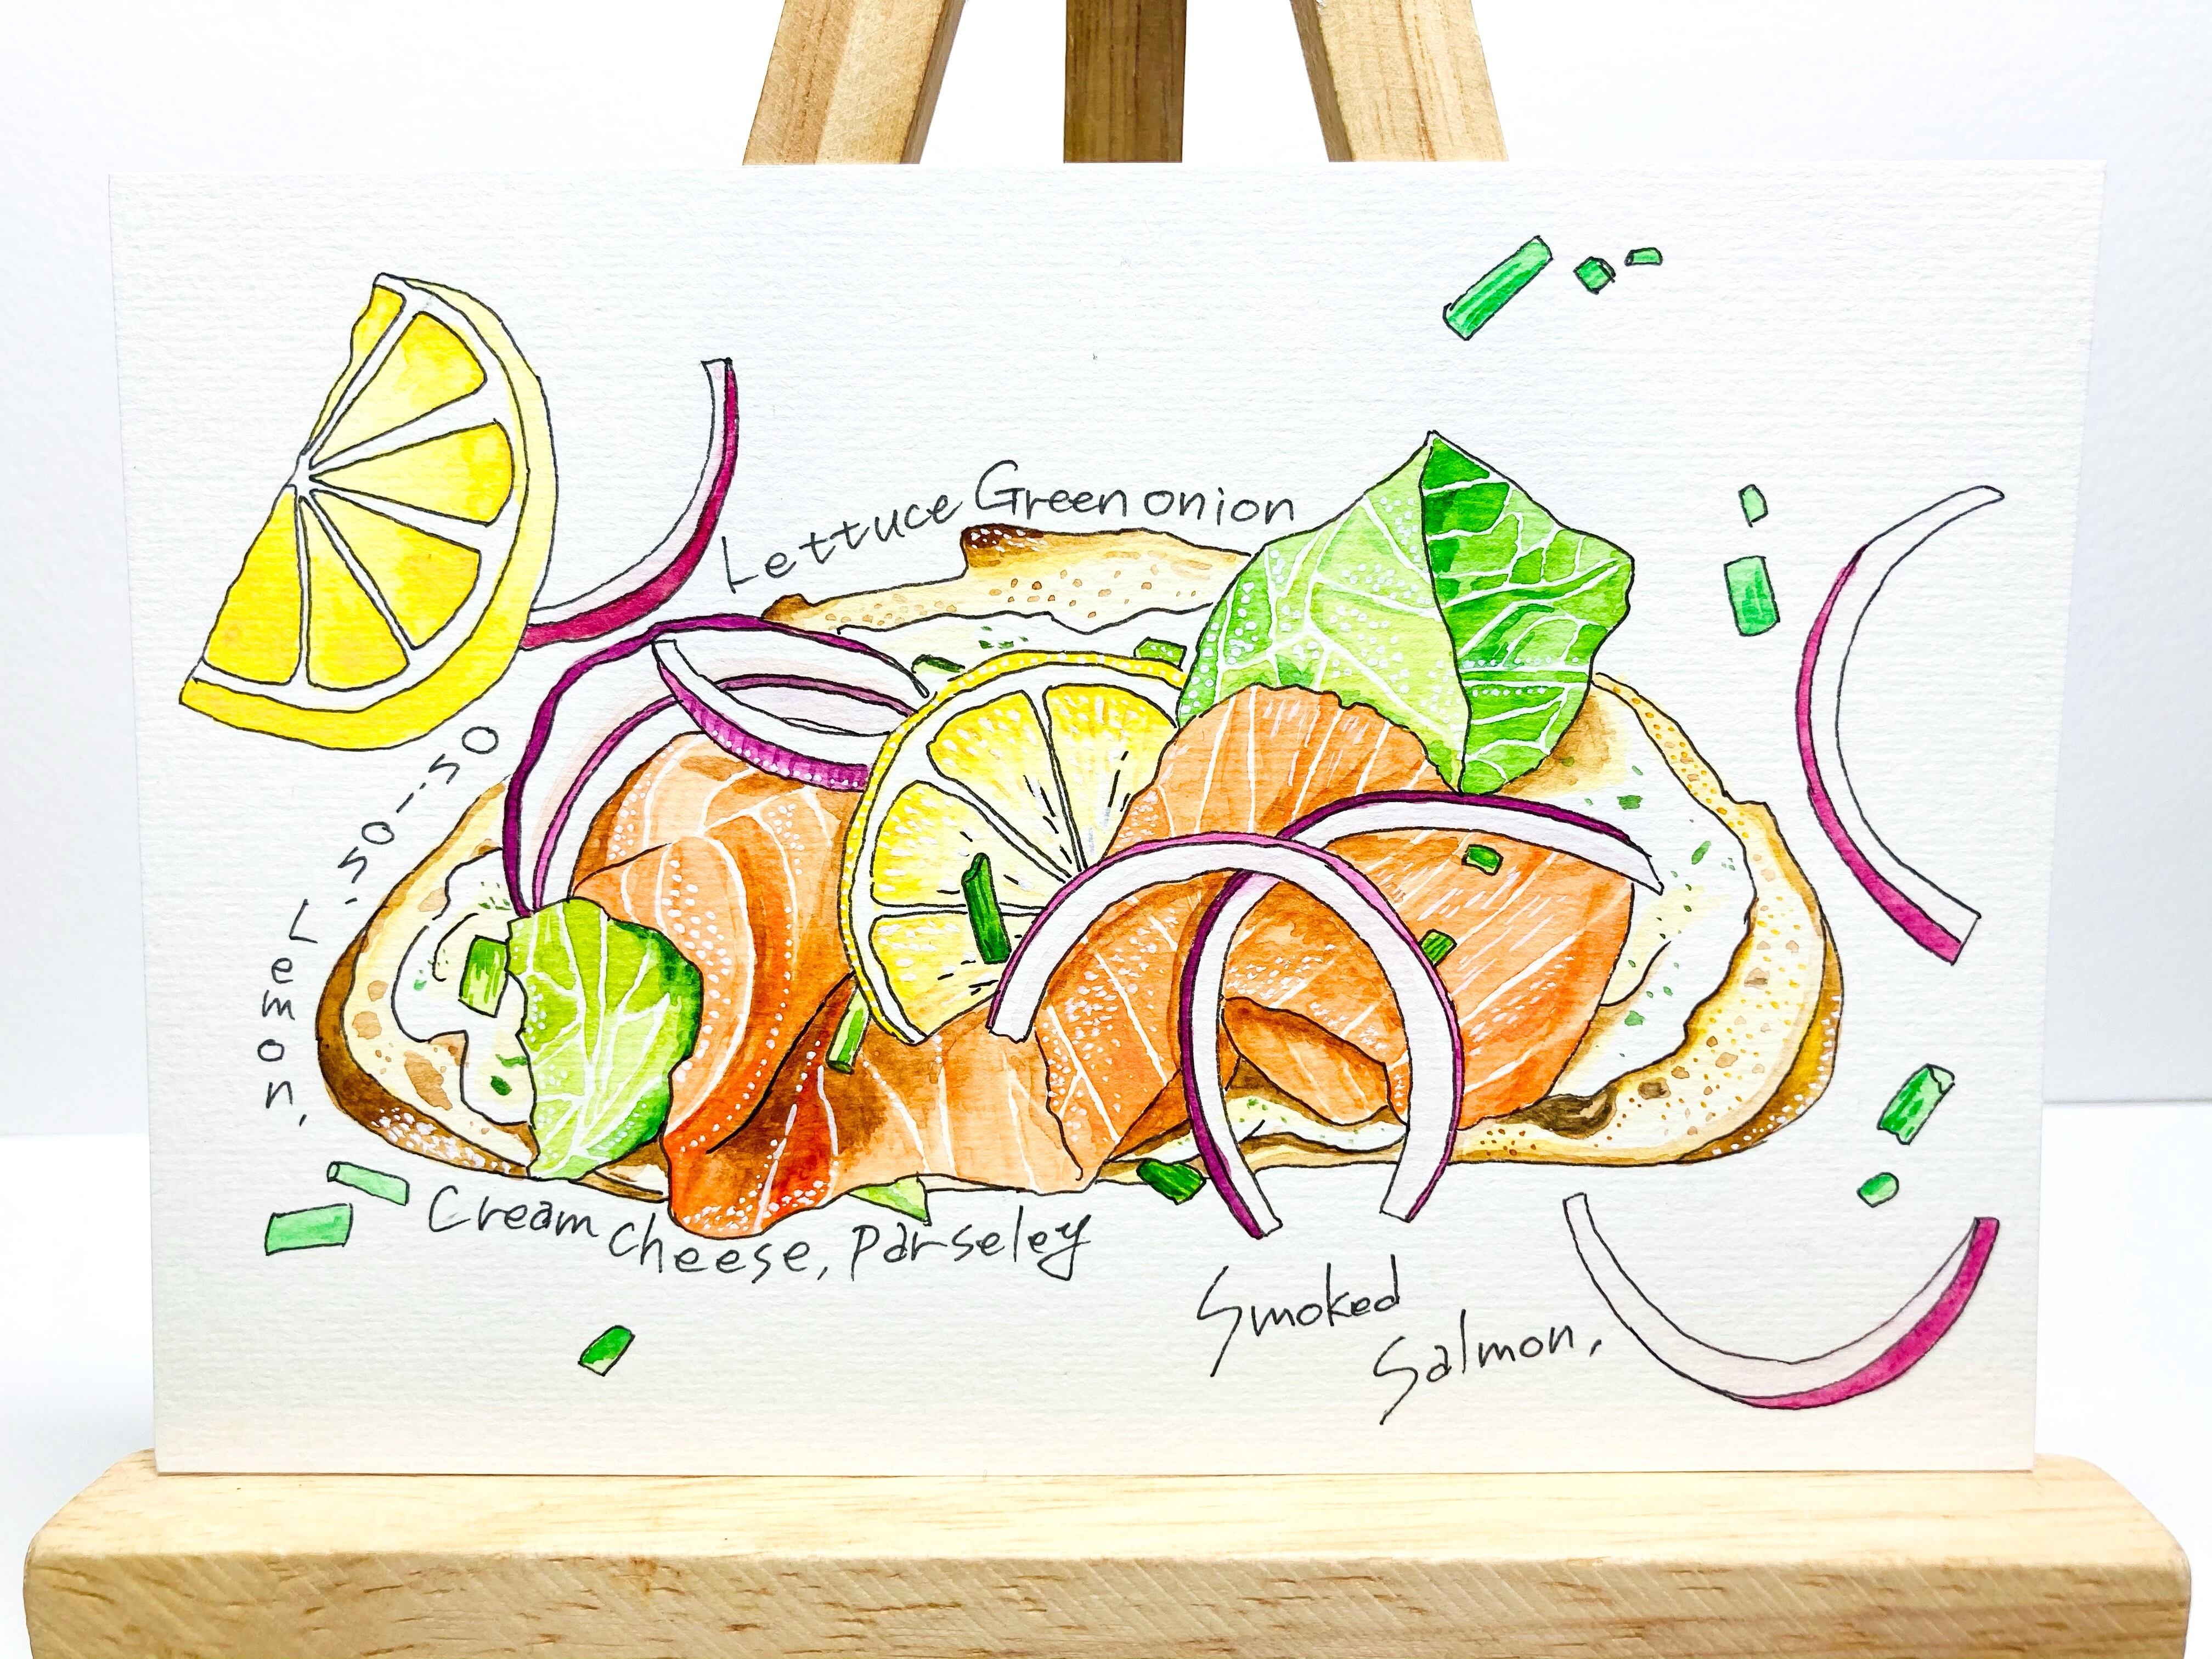 Lettuce Green onion
Lemon, so-so
Cream cheese, Parseley
Smoked
Salmon,